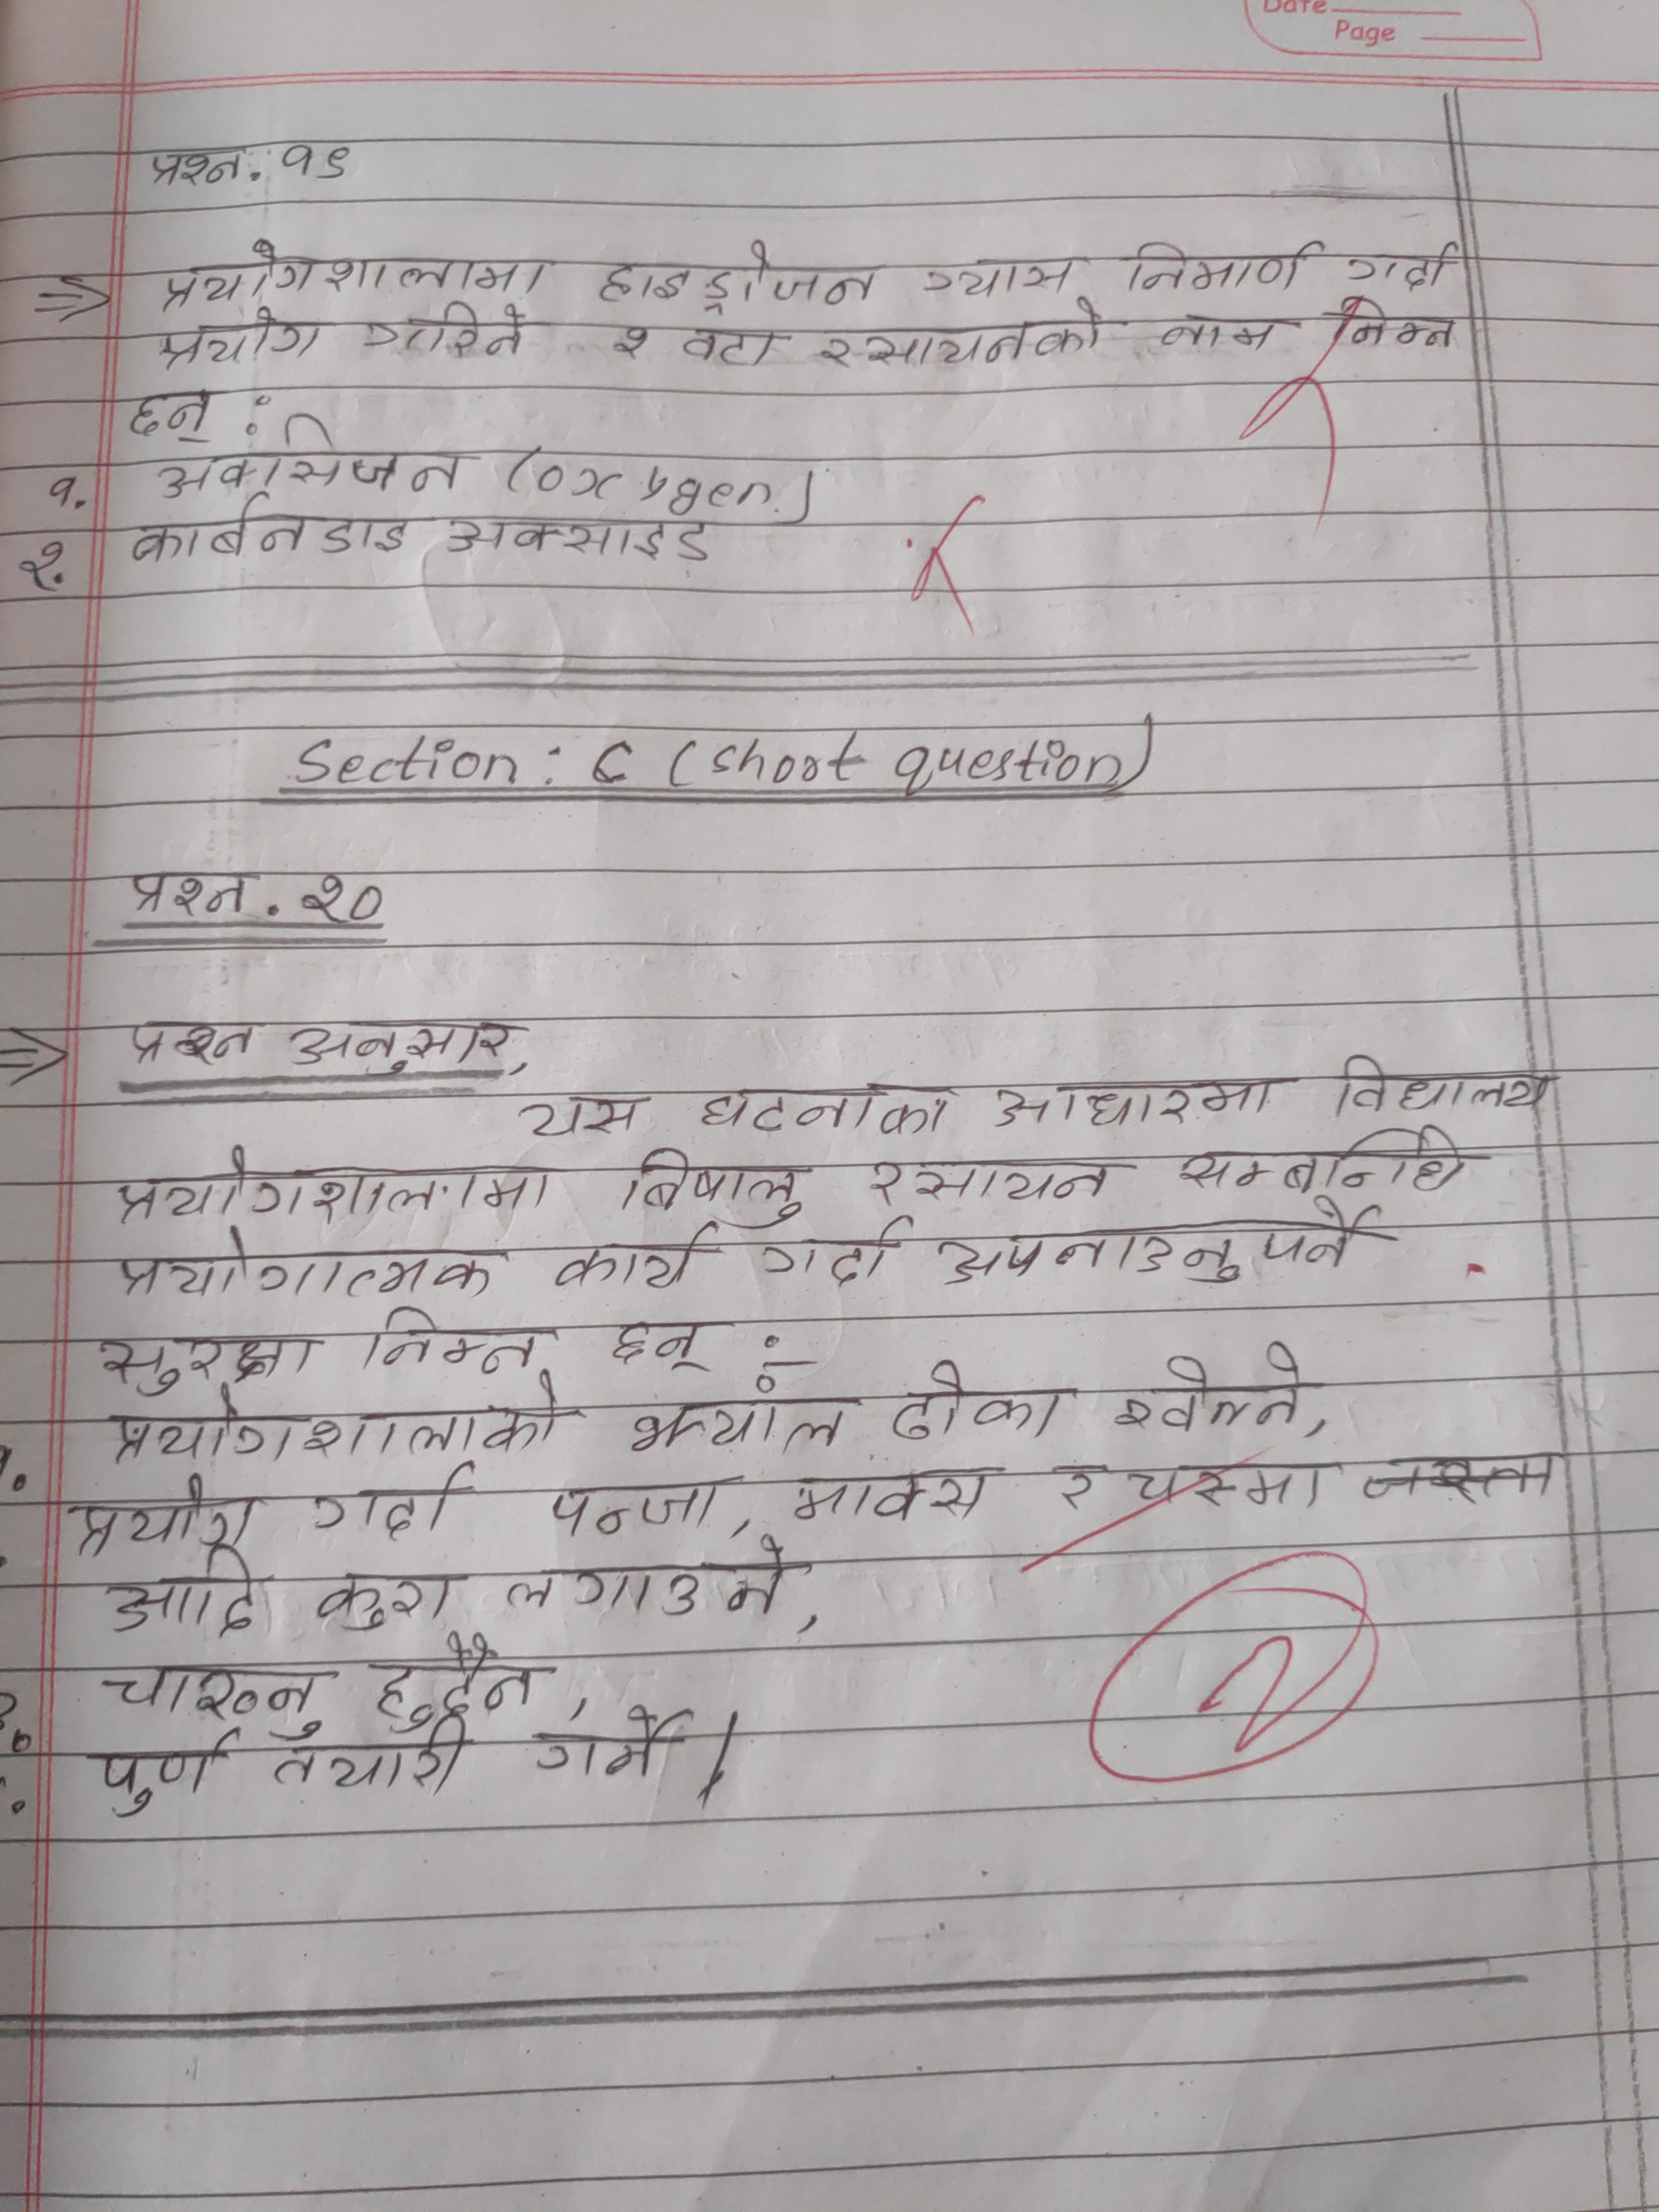 Date
Page
प्रश्न. १९
⇒ प्रयोगशालामा हाइड्रोजन ग्यास निमार्ण गर्दा
प्रयोग गरिने २ वटा रसायनको नाम निम्न
छन् :
१. अक्सिजन (oxygen)
२. कार्बनडाइ अक्साइड
Section : C (short question)
प्रश्न . २०
⇒ प्रश्न अनुसार,
यस घटनाका आधारमा विद्यालय
प्रयोगशालामा बिषालु रसायन सम्बन्धि
प्रयोगात्मक कार्य गर्दा अपनाउनु पर्ने
सुरक्षा निम्न छन् :-
१. प्रयोगशालाको भ्याँल ढोका खोल्ने,
प्रयोग गर्दा पन्जा, माक्स र चस्मा जस्ता
आदि कुरा लगाउने,
चाख्नु हुदैन,
पुर्ण तयारी गर्ने।
२